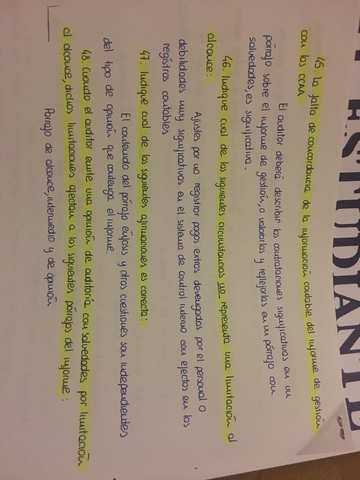 ESTUDIAN
45. La falta de concordancia de la información contable del informe de gestión
con las CCAA
El auditor deberá describir las contradicciones significativas en un
párrafo sobre el informe de gestión, o valorarlas y reflejarlas en un párrafo con
salvedades, es significativa.
46. Indique cual de las siguientes circunstancias no representa una limitación al
alcance:
Ajustes por no registrar pagos extras devengadas por el personal o
debilidades muy significativas en el sistema de control interno con efectos en los
registros contables
47. Indique cual de las siguientes afirmaciones es correcta:
El contenido del párrafo énfasis y otras cuestiones son independientes
del tipo de opinión que contenga el informe.
48. Cuando el auditor emite una opinión de auditoría con salvedades por limitación
al alcance, dichas limitaciones afectan a los siguientes párrafos del informe:
Párrafo de alcance, intermedio y de opinión